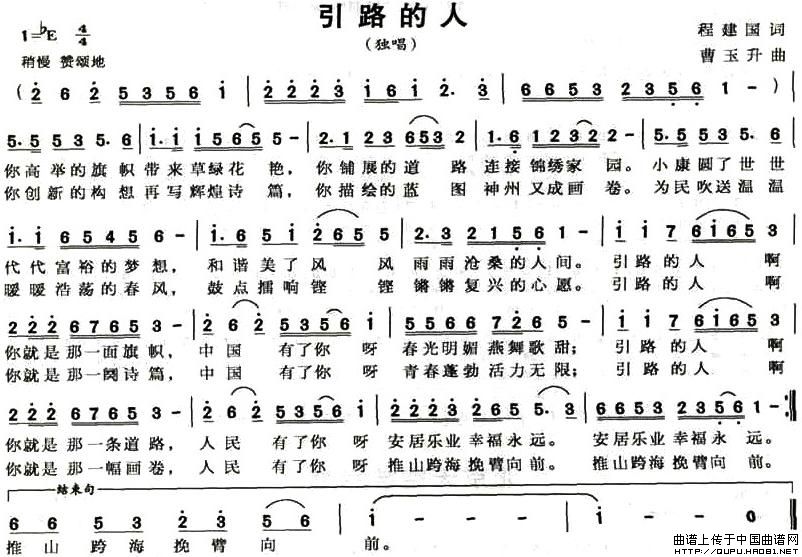 引路的人
1=♭E 4/4
（独唱）
程建国 词
曹玉升 曲
稍慢 赞颂地
( 2 6 2 5 3 5 6 1 | 2 2 2 3 1 6 1 2. 3 | 6 6 5 3 2 3 5 6 1 - ) |
5. 5 5 3 5. 6 | 1. 1 1 5 6 5 5 - | 2. 1 2 3 6 5 3 2 | 1. 6 1 2 3 2 2 - | 5. 5 5 3 5. 6 |
你高举的旗帜带来草绿花 艳，你铺展的道 路 连接锦绣家 园。小康圆了世世
你创新的构想再写辉煌诗 篇，你描绘的蓝 图 神州又成画 卷。为民吹送温温
1. 1 6 5 4 5 6 - | 1. 6 5 1 2 6 5 5 | 2. 3 2 1 5 6 1 - | 1 1 7 6 1 6 5 3 |
代代富裕的梦想， 和谐美了风 风 雨雨沧桑的人间。引路的人 啊
暖暖浩荡的春风， 鼓点擂响铿 铿 锵锵复兴的心愿。引路的人 啊
2 2 2 6 7 6 5 3 - | 2 6 2 5 3 5 6 1 | 5 5 6 6 7 2 6 5 - | 1 1 7 6 1 6 5 3 |
你就是那一面旗帜， 中国 有了你 呀 春光明媚燕舞歌甜；引路的人 啊
你就是那一阕诗篇， 中国 有了你 呀 青春蓬勃活力无限；引路的人 啊
2 2 2 6 7 6 5 3 - | 2 6 2 5 3 5 6 1 | 2 2 2 3 2 6 5 5. 3 | 6 6 5 3 2 3 5 6 1 - :|
你就是那一条道路， 人民 有了你 呀 安居乐业幸福永远。安居乐业幸福永 远。
你就是那一幅画卷， 人民 有了你 呀 推山跨海挽臂向前。推山跨海挽臂向 前。
结束句
6 6 5 3 2 3 5 6 | 1 - - - | 1 - - - ‖
推 山 跨 海 挽 臂 向 前。
曲谱上传于中国曲谱网
HTTP://QUPU.HAO81.NET